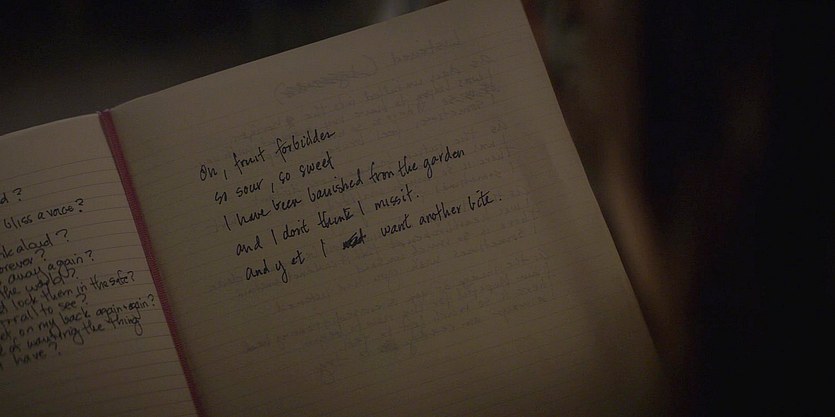 d?
bliss a voice?
nk aloud?
orever?
away again?
the world?
d lock them in the safe?
rrail to see?
et on my back again + again?
e of wanting the thing
have?
Oh, fruit forbidden
so sour, so sweet
I have been banished from the garden
and I don't think I miss it.
and yet I want another bite.